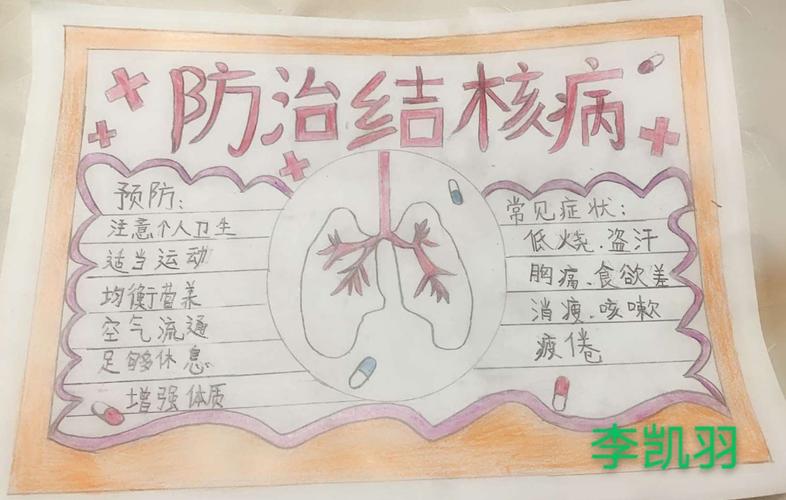 防治结核病
预防:
注意个人卫生
适当运动
均衡营养
空气流通
足够休息
增强体质
常见症状:
低烧.盗汗
胸痛.食欲差
消瘦.咳嗽
疲倦
李凯羽